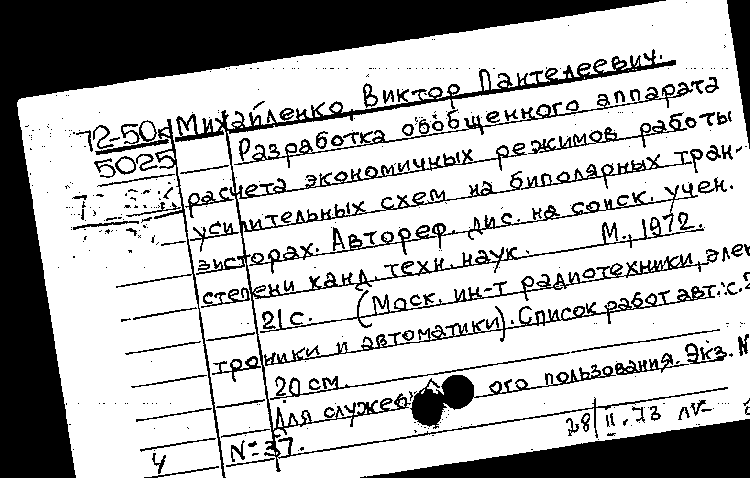 72-50к Михайленко, Виктор Пантелеевич.
5025 Разработка обобщенного аппарата
расчета экономичных режимов работы
усилительных схем на биполярных тран-
зисторах. Автореф. дис. на соиск. учен.
степени канд. техн. наук. М., 1972.
21 с. (Моск. ин-т радиотехники, элек
троники и автоматики). Список работ авт.: с.
20 см.
Для служеб ого пользования. Экз. №
№ 37.
28/II.73
4